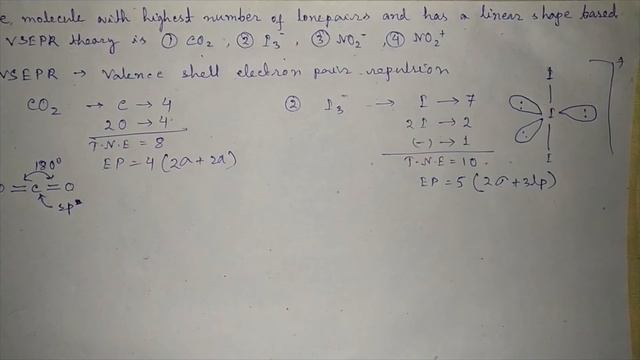 e, molecule with highest number of lonepairs and has a linear shape based
VSEPR theory is ① CO₂ , ② I₃⁻ , ③ NO₂⁻ , ④ NO₂⁺
VSEPR → Valence shell electron pair repulsion
CO₂ → C → 4
2O → 4
T.N.E = 8
EP = 4 (2σ + 2σ)
180°
O=C=O
sp
② I₃⁻ → I → 7
2I → 2
(-) → 1
T.N.E = 10
EP = 5 (2σ + 3lp)
I
I
I